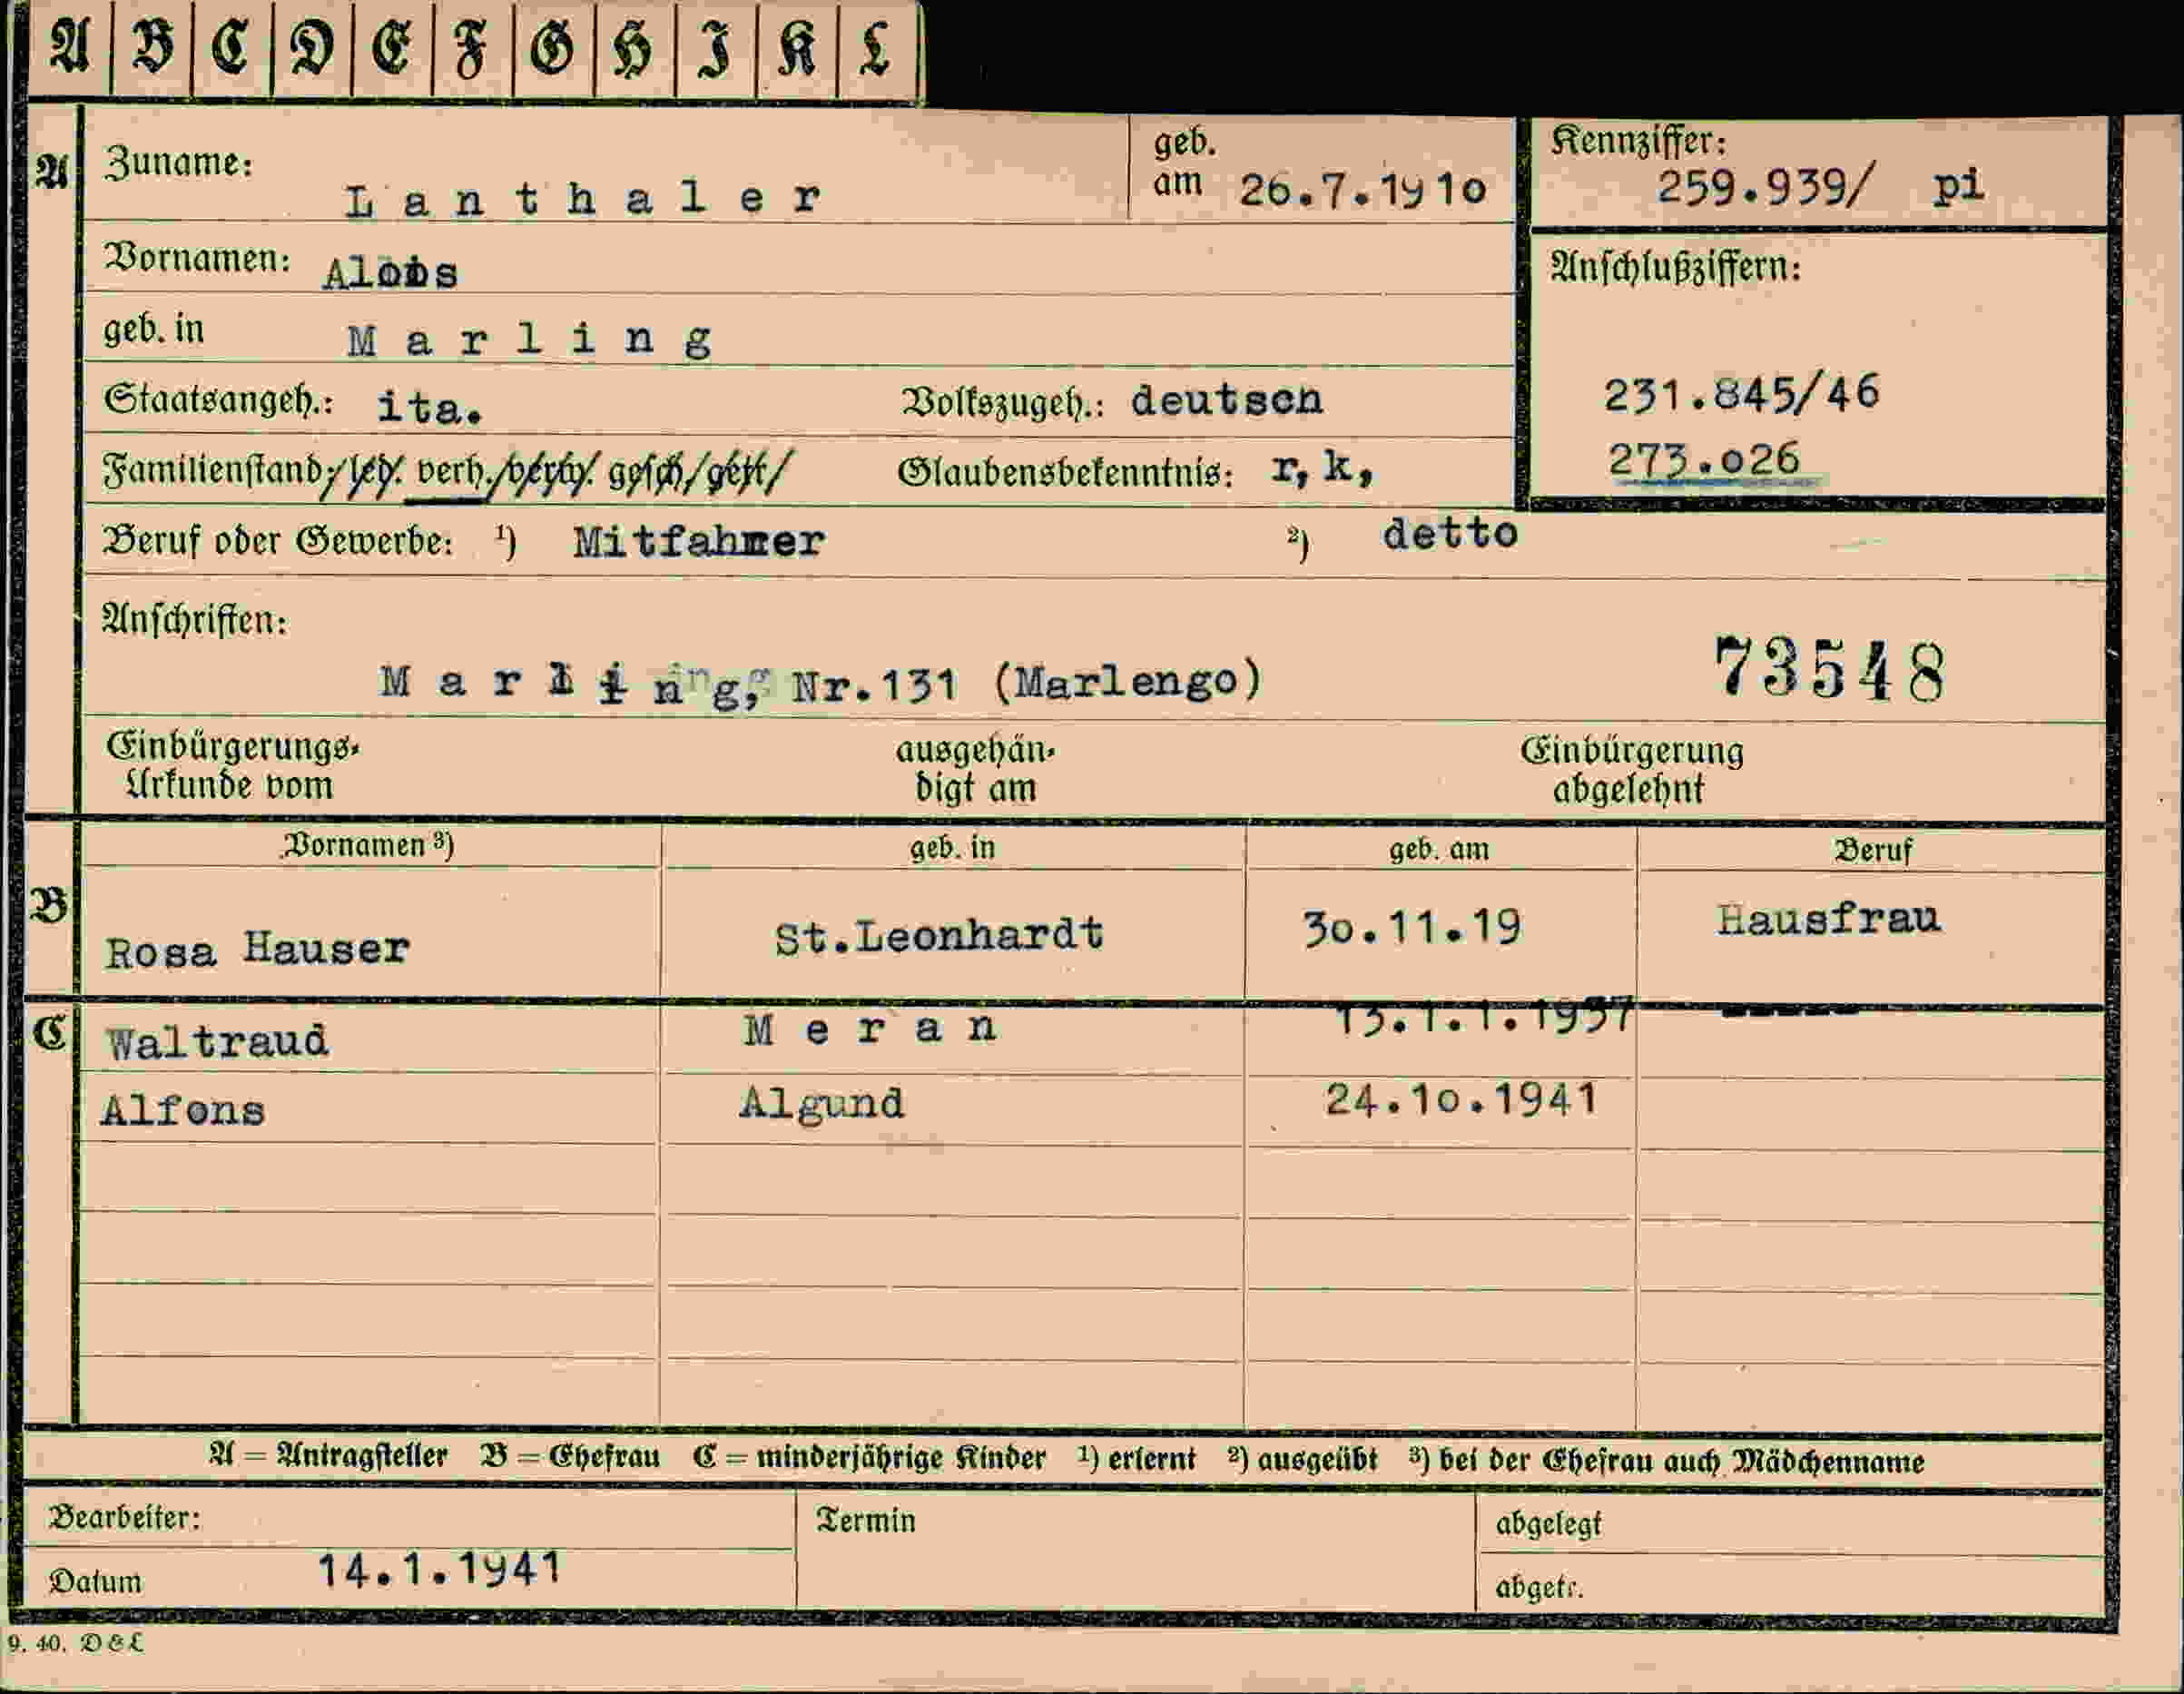 A B C D E F G H I K L
A Zuname: Lanthaler geb. am 26.7.1910 Kennziffer: 259.939/ pi
Vornamen: Alois Anschlußziffern:
geb. in Marling
Staatsangeh.: ita. Volkszugeh.: deutsch 231.845/46
Familienstand: led. verh./verw. gesch/getr/ Glaubensbekenntnis: r, k, 273.026
Beruf oder Gewerbe: ¹) Mitfahrer ²) detto
Anschriften:
Marling, Nr.131 (Marlengo) 73548
Einbürgerungs- ausgehän- Einbürgerung
Urkunde vom digt am abgelehnt
Vornamen ³) geb. in geb. am Beruf
B Rosa Hauser St.Leonhardt 30.11.19 Hausfrau
C Waltraud Meran 13.1.1.1937
Alfons Algund 24.10.1941
A = Antragsteller B = Ehefrau C = minderjährige Kinder ¹) erlernt ²) ausgeübt ³) bei der Ehefrau auch Mädchenname
Bearbeiter: Termin abgelegt
Datum 14.1.1941 abgetr.
9. 40. D&L